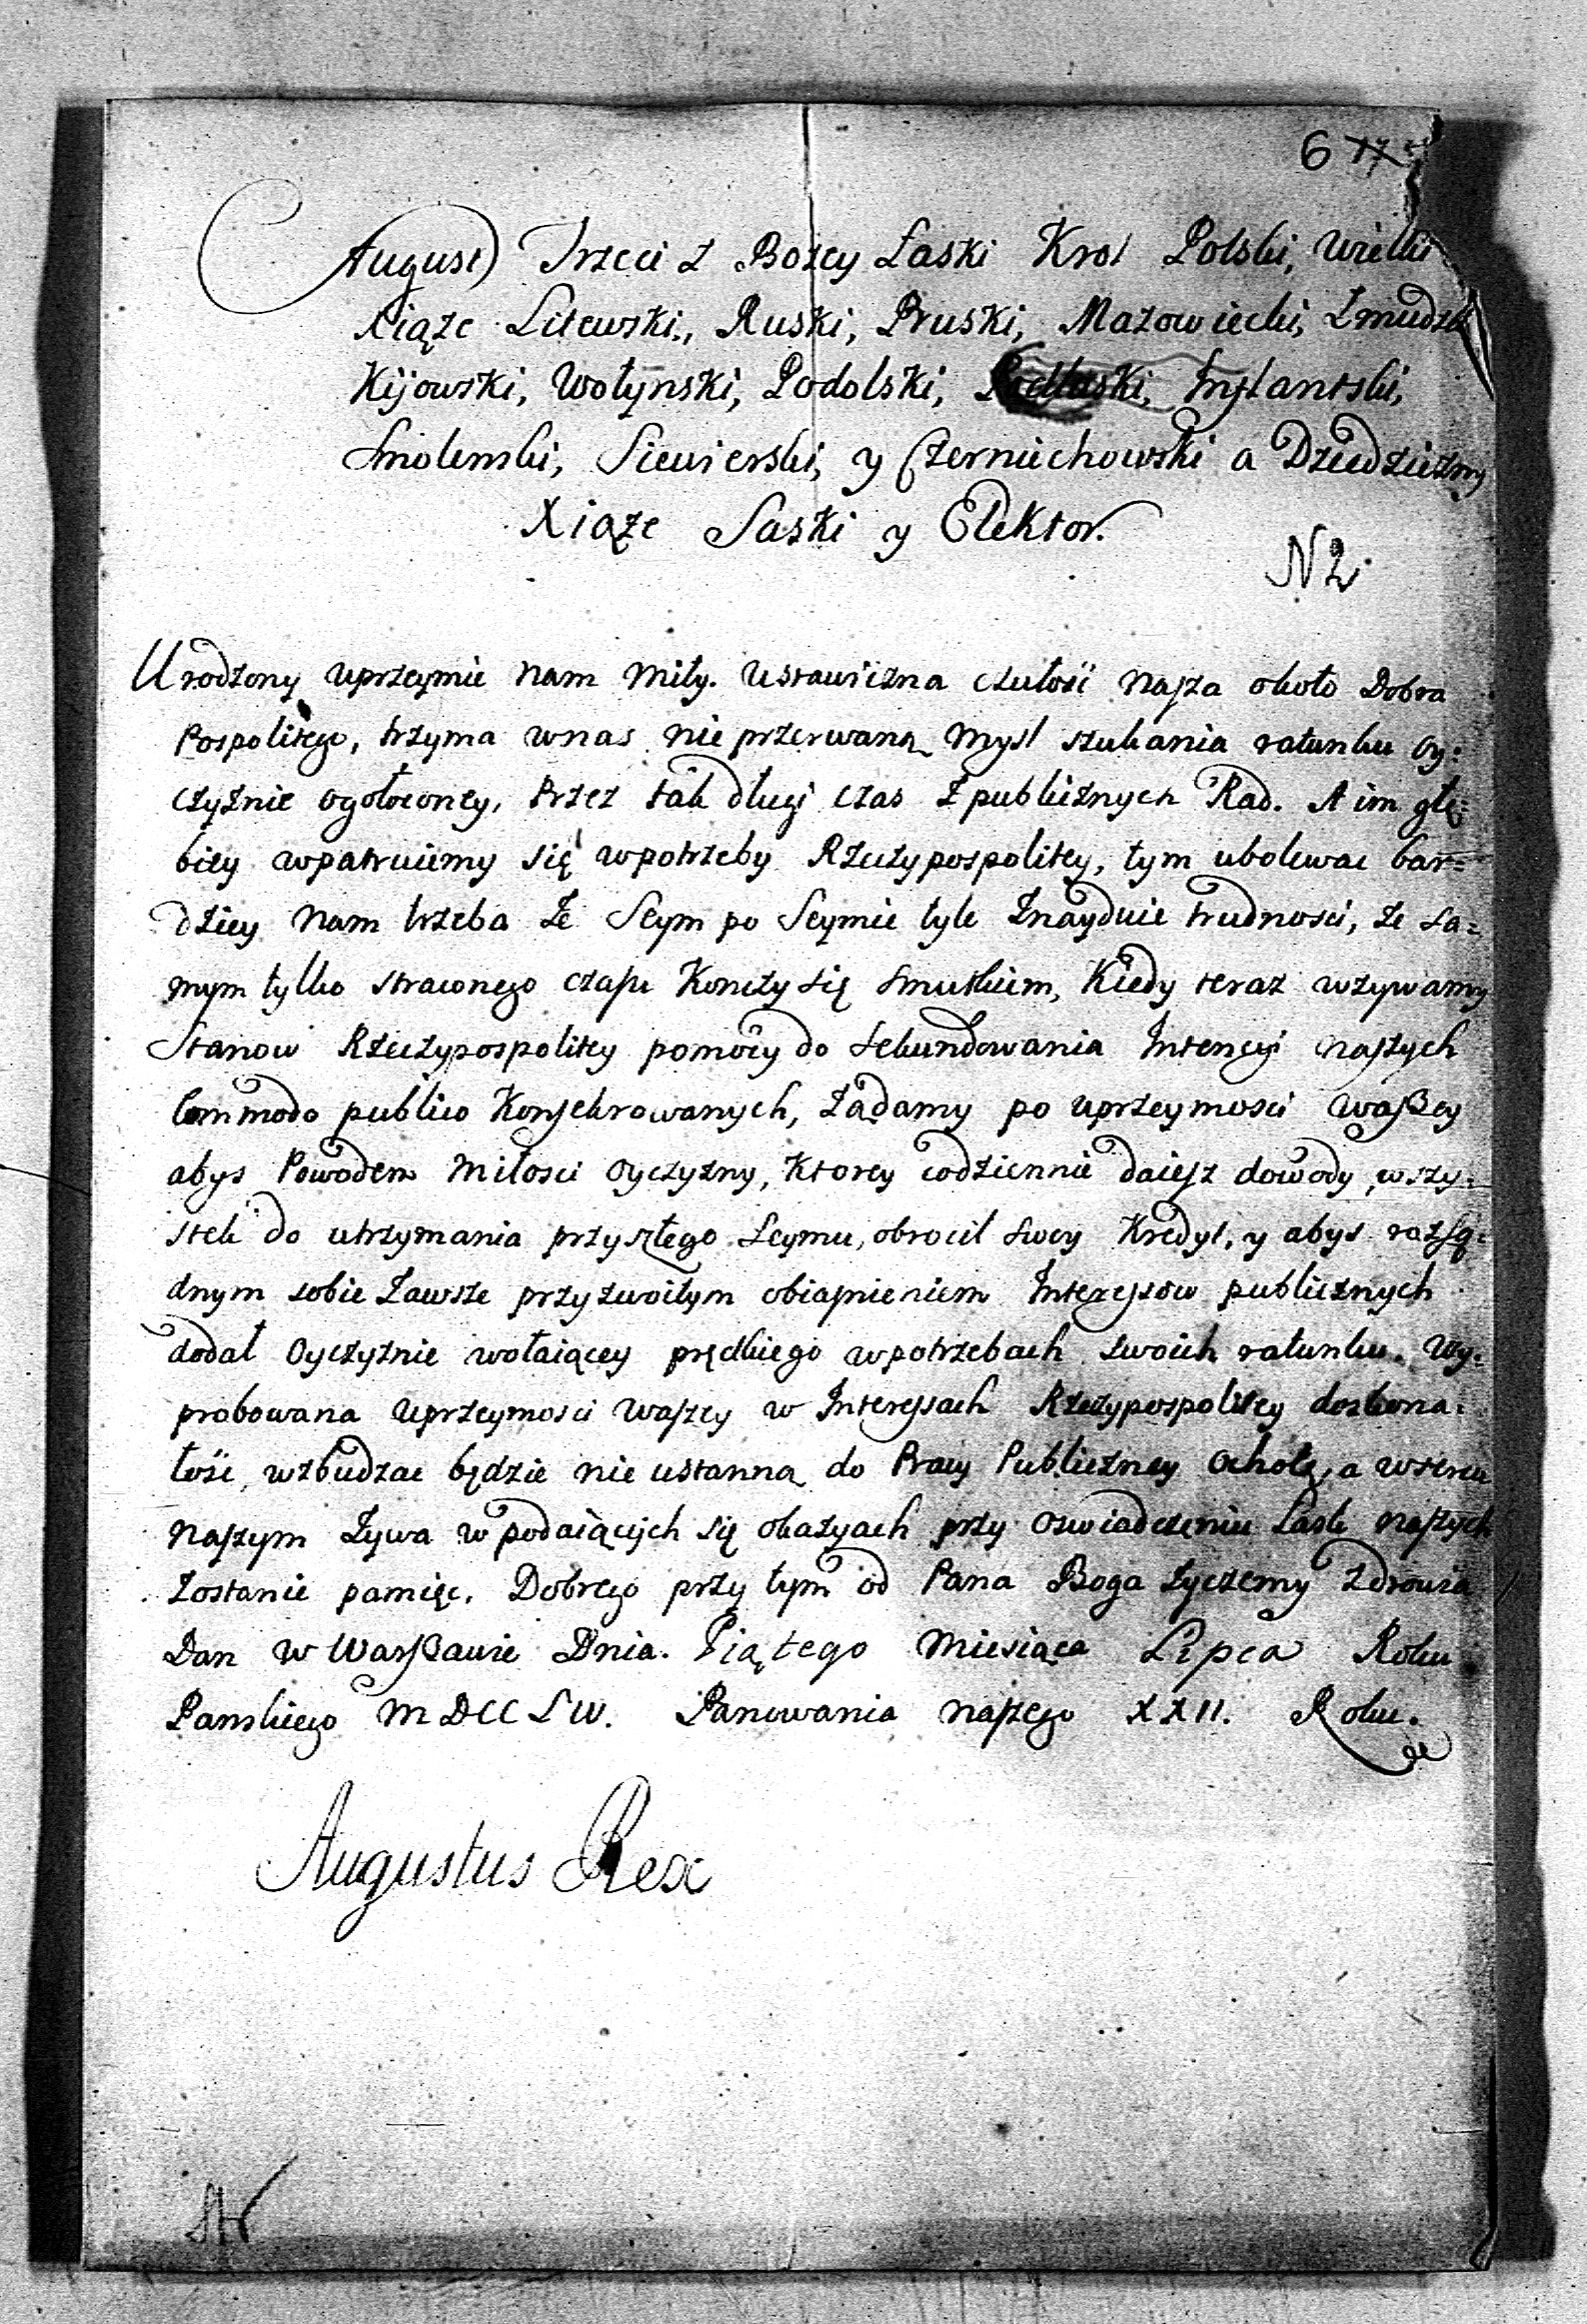 6 17
August Trzeci z Bozey Łaski Krol Polski, Wielki
Xiąże Litewski, Ruski, Pruski, Mazowiecki, Zmudzki
Kijowski, Wołynski, Podolski, Podlaski, Inflantski,
Smolenski, Siewierski, y Czerniechowski a Dziedziczny
Xiąże Saski y Elektor.
N 2
Urodzony uprzeymie nam miły. Ustawiczna czułość nasza około Dobra
Pospolitego, trzyma wnas nieprzerwaną mysl szukania ratunku Oy:
czyznie ogołoconey, przez tak długi czas z publicznych Rad. A im głę:
biey wpatruiemy się wpotrzeby Rzeczypospolitey, tym ubolewac bar=
dziey nam trzeba że Seym po Seymie tyle znayduie trudnosci, że sa=
mym tylko straconego czasu konczy się smutkiem, Kiedy teraz wzywamy
Stanow Rzeczypospolitey pomocy do sekundowania Intencyi naszych
Commodo publico Konsekrowanych, żądamy po uprzeymosci waszey
abys Powodem miłosci Oyczyzny, Ktorey codziennie daiesz dowody, wszy=
stek do utrzymania przyszłego Seymu, obrocił swoy Kredyt, y abys rozsą=
dnym sobie zawsze przyzwoitym obiasnieniem Interessow publicznych
dodał Oyczyznie wołaiącey prędkiego wpotrzebach swoich ratunku. Wy:
probowana uprzeymosci waszey w Interessach Rzeczypospolitey doskona:
łość, wzbudzac będzie nieustanną do Pracy Publiczney ochotę, a wsercu
naszym żywa w podaiących się okazyach przy oswiadczeniu Łask naszych
zostanie pamięc. Dobrego przy tym od Pana Boga życzemy zdrowia
Dan w Warszawie Dnia. Piątego Miesiąca Lipca Roku
Panskiego MDCCLIV. Panowania naszego XXII. Roku.
Augustus Rex